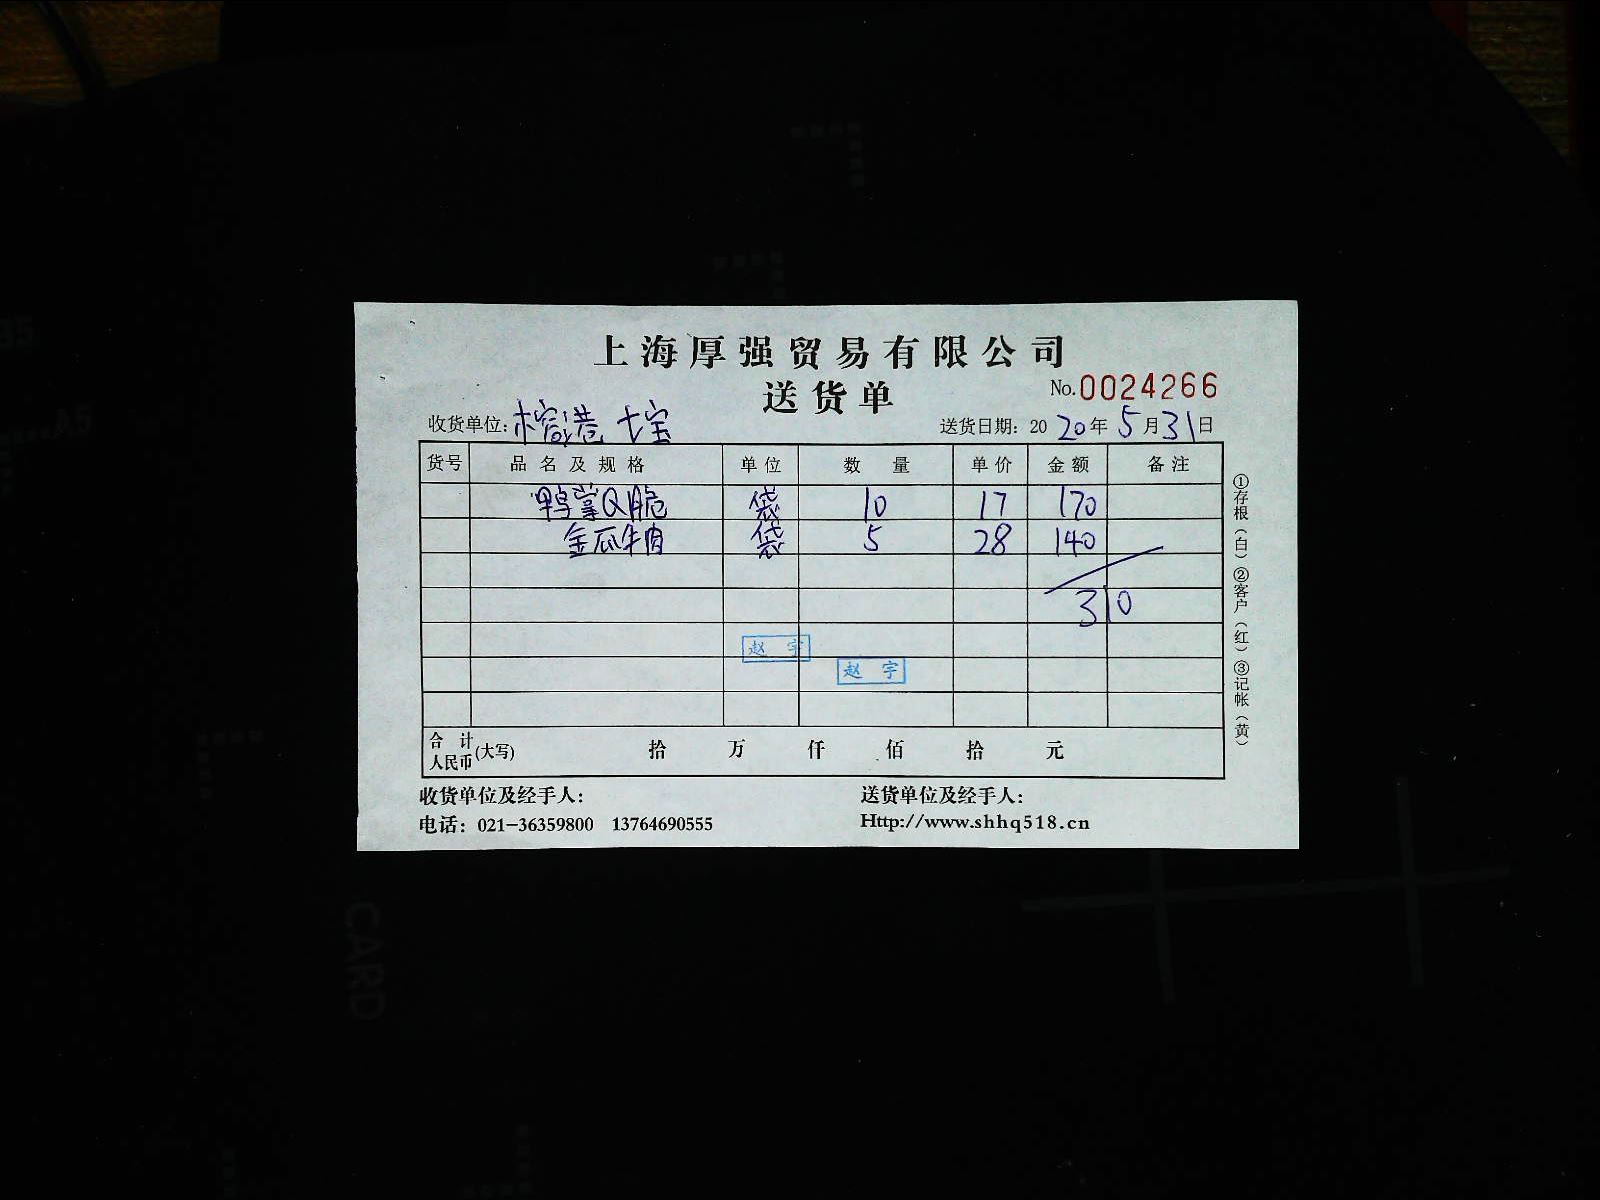 上海厚强贸易有限公司
送货单
No.0024266
收货单位:榕港 七宝
送货日期: 2020年5月31日
货号 品名及规格 单位 数量 单价 金额 备注
鸭掌Q脆 袋 10 17 170
金瓜牛肉 袋 5 28 140
310
赵宇
赵宇
合计人民币(大写) 拾 万 仟 佰 拾 元
收货单位及经手人: 送货单位及经手人:
电话: 021-36359800 13764690555 Http://www.shhq518.cn
①存根(白)②客户(红)③记帐(黄)
CARD
A5